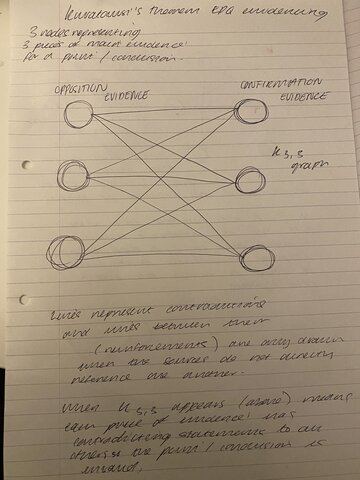 Kuratowski's Theorem EPQ evidencing
3 nodes representing
3 pieces of main 'evidence'
for a point / conclusion.
OPPOSITION
EVIDENCE
CONFIRMATION
EVIDENCE
K 3,3
graph
Lines represent contradictions
and links between them
(reinforcements) are only drawn
when the sources do not directly
reference one another.
When K 3,3 appears (above) means
each piece of 'evidence' has
contradicting statements to all
others & the point / conclusion is
invalid.